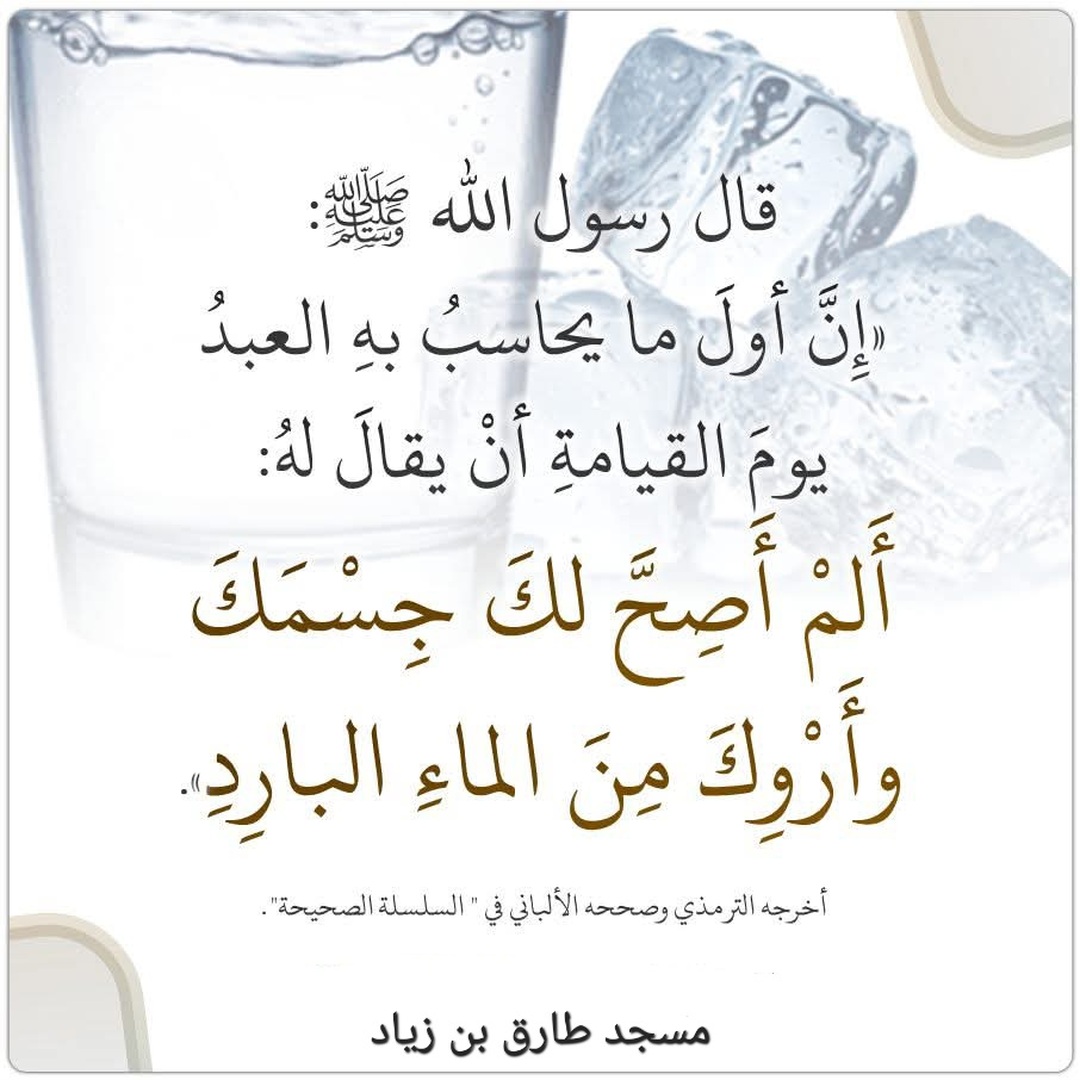 قال رسول الله ﷺ:
«إِنَّ أولَ ما يحاسبُ بهِ العبدُ
يومَ القيامةِ أنْ يقالَ لهُ:
أَلمْ أَصِحَّ لكَ جِسْمَكَ
وأَرْوِكَ مِنَ الماءِ البارِدِ».
أخرجه الترمذي وصححه الألباني في " السلسلة الصحيحة".
مسجد طارق بن زياد